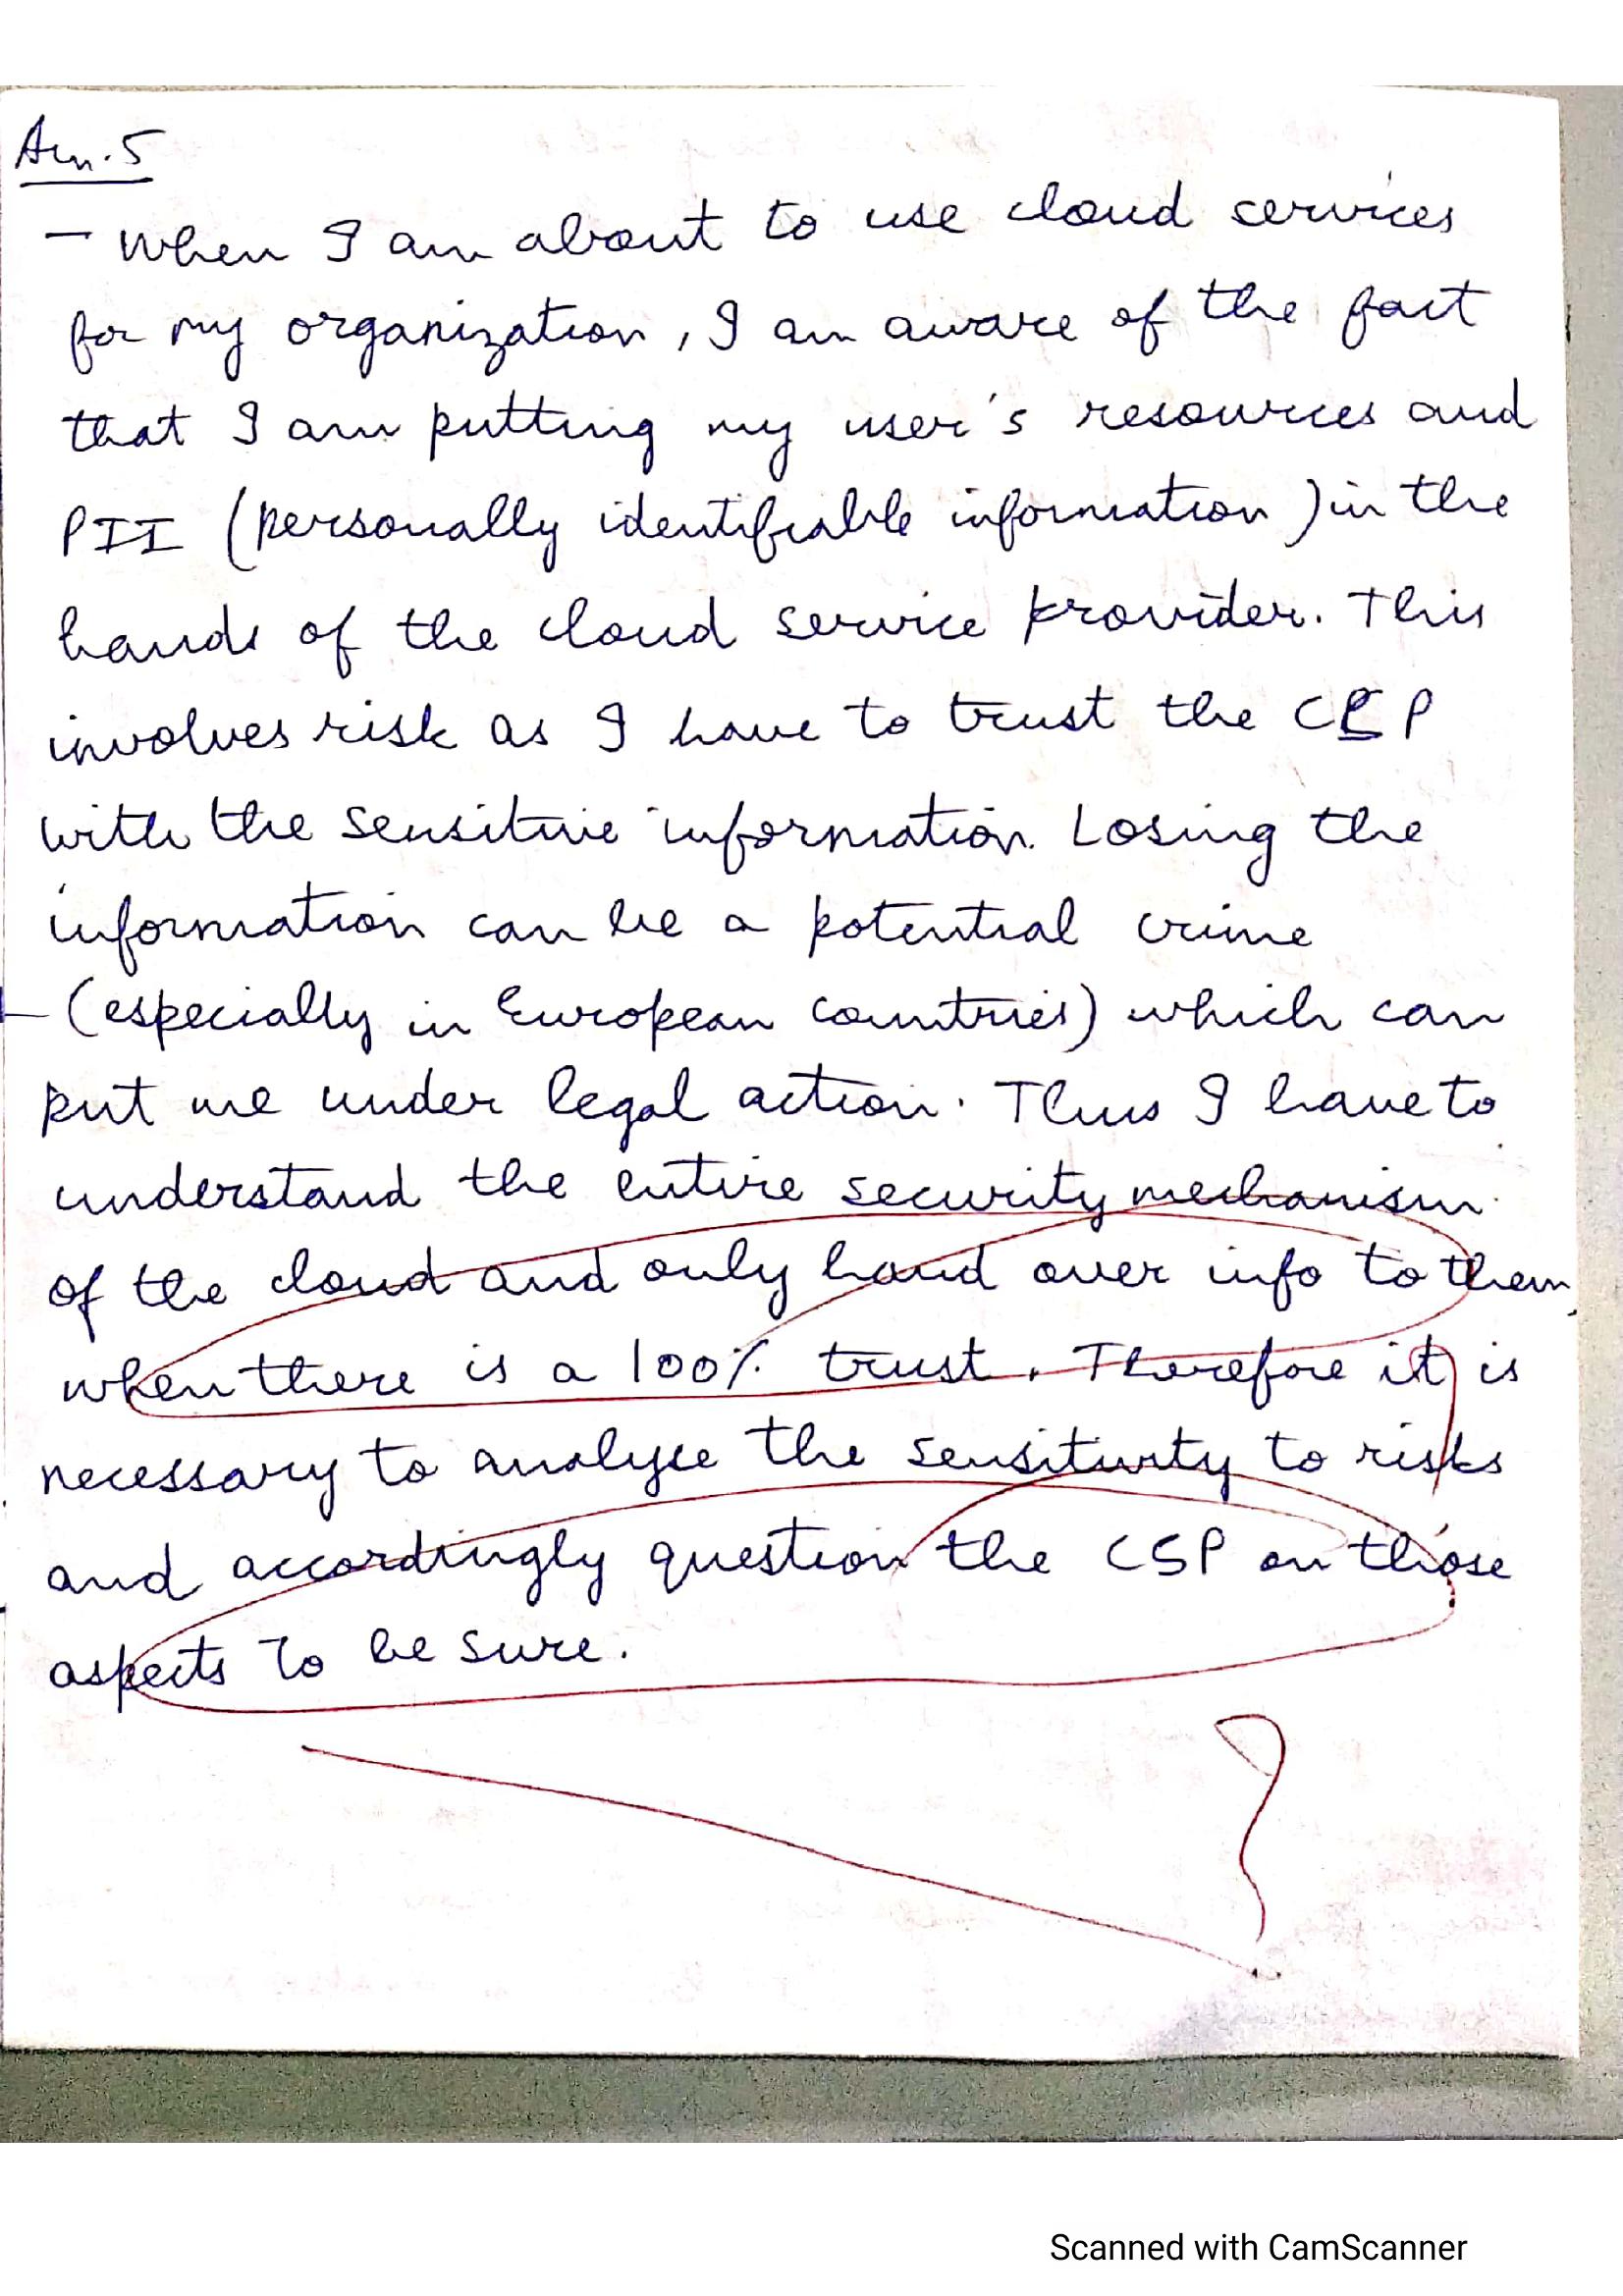 Ans.5
- When I am about to use cloud services
for my organization, I am aware of the fact
that I am putting my user's resources and
PII (personally identifiable information) in the
hands of the cloud service provider. This
involves risk as I have to trust the CSP
with the sensitive information. Losing the
information can be a potential crime
(especially in European countries) which can
put me under legal action. Thus I have to
understand the entire security mechanism
of the cloud and only hand over info to them,
when there is a 100% trust. Therefore it is
necessary to analyse the sensitivity to risks
and accordingly question the CSP on those
aspects to be sure.
?
Scanned with CamScanner